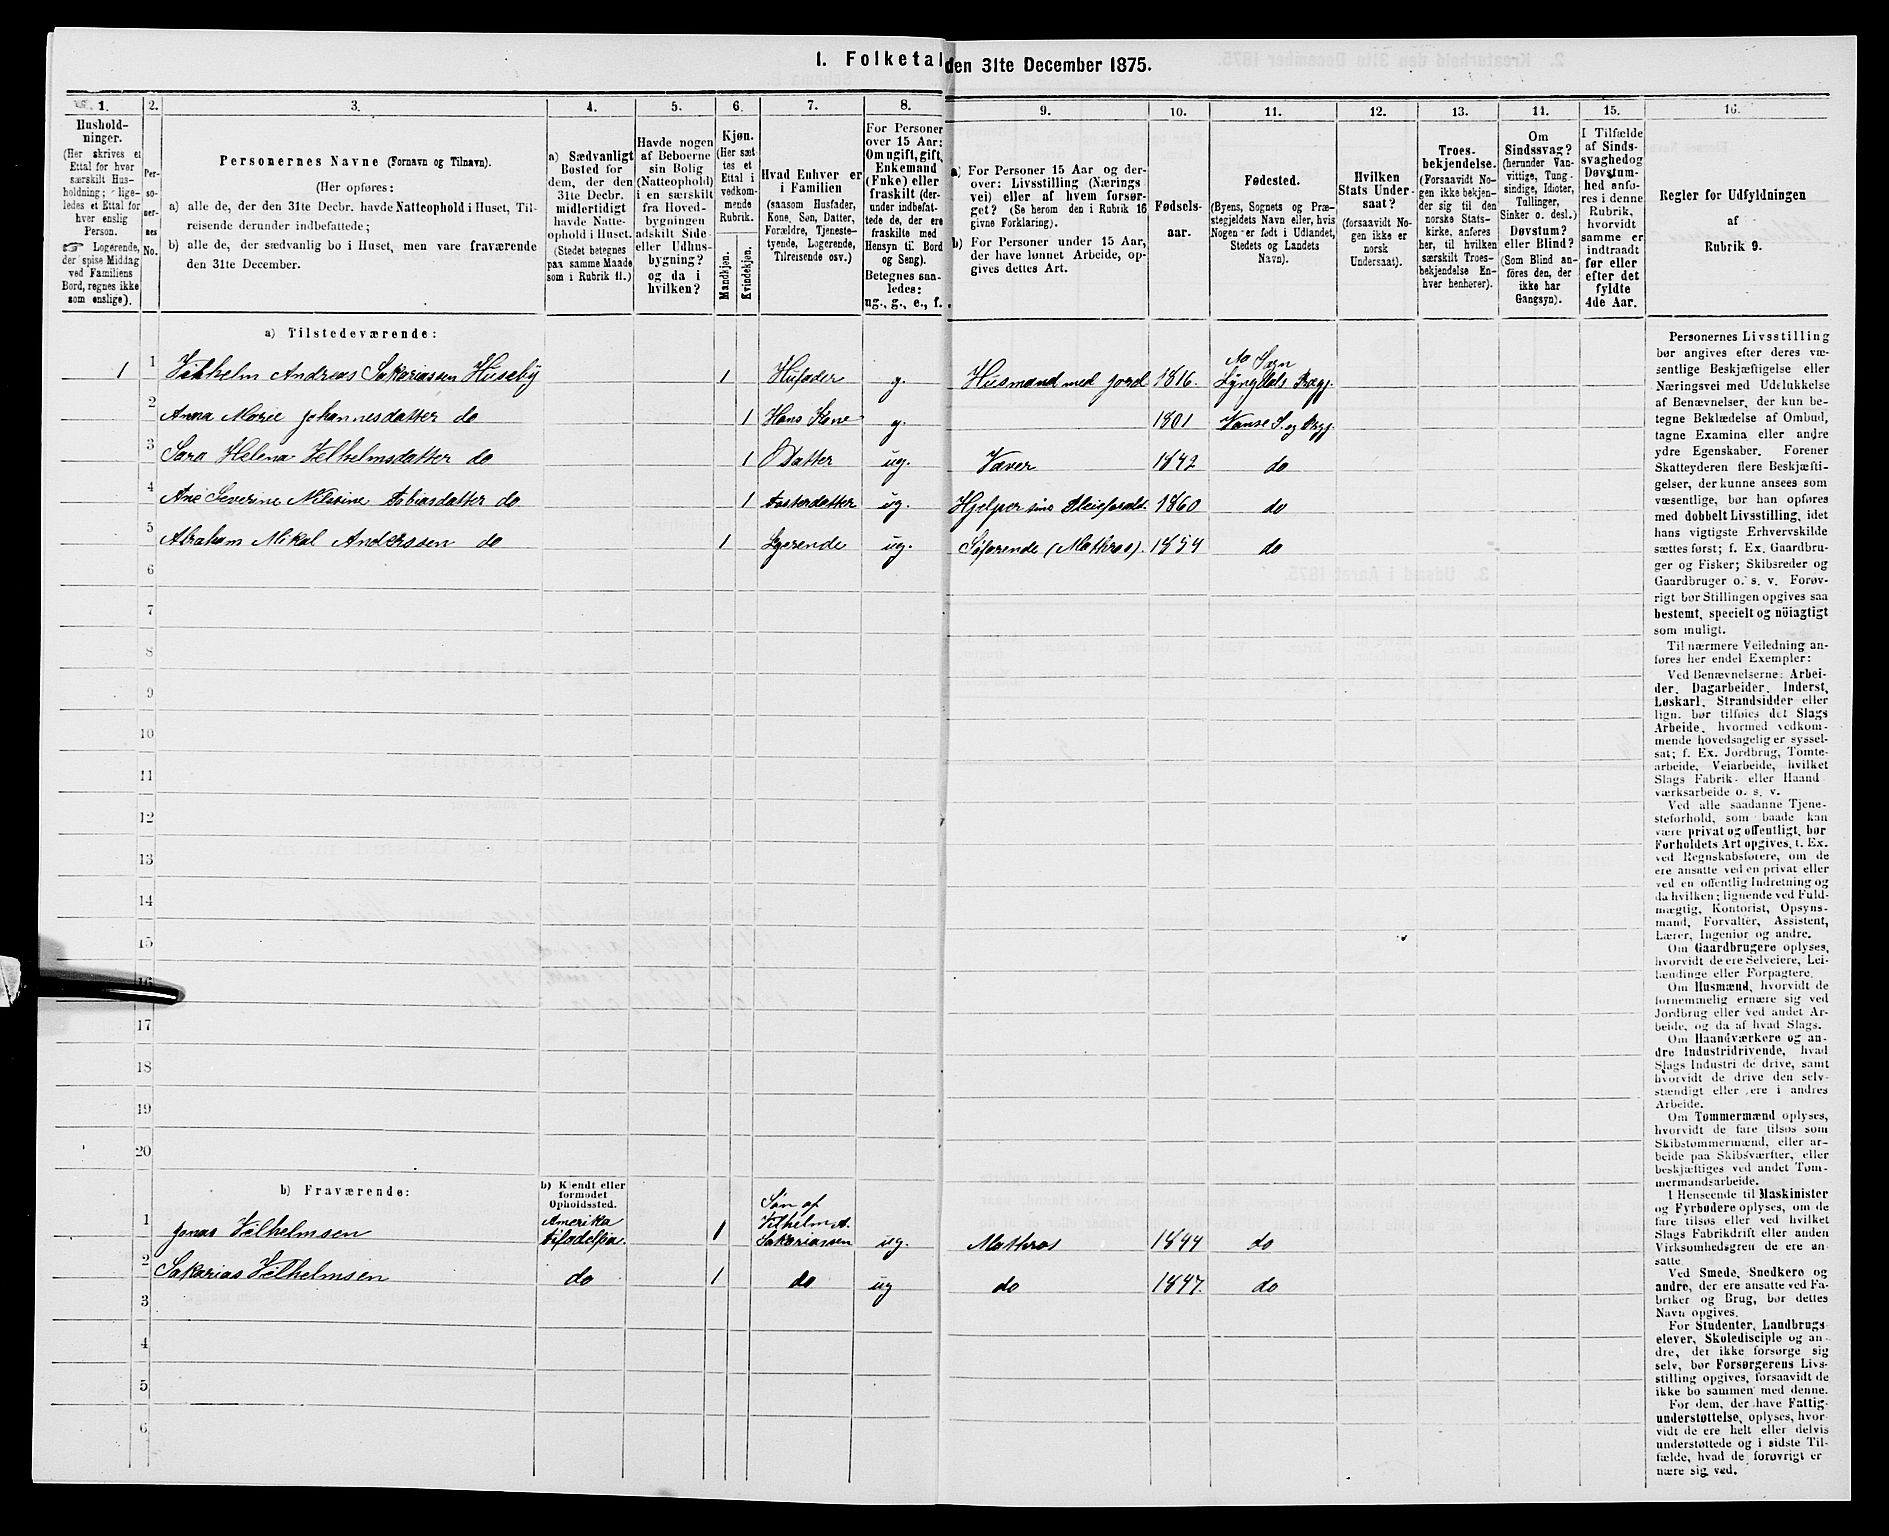 1. Folketal den 31te December 1875.
1. 2. 3. 4. 5. 6. 7. 8. 9. 10. 11. 12. 13. 14. 15. 16.
Hushold-
ninger.
(Her skrives et
Ettal for hver
særskilt Hus-
holdning; lige-
ledes et Ettal for
hver enslig
Person.
☞ Logerende,
der spise Middag
ved Familiens
Bord, regnes ikke
som enslige).
Per-
so-
ner-
nes
No.
Personernes Navne (Fornavn og Tilnavn).
(Her opføres:
a) alle de, der den 31te Decbr. havde Natteophold i Huset, Til-
reisende derunder indbefattede;
b) alle de, der sædvanlig bo i Huset, men vare fraværende
den 31te December.
a) Sædvanligt
Bosted for
dem, der den
31te Decbr.
midlertidigt
havde Natte-
ophold i Huset.
(Stedet betegnes
paa samme Maade
som i Rubrik 11.)
Havde nogen
af Beboerne
sin Bolig
(Natteophold)
i en særskilt
fra Hoved-
bygningen
adskilt Side-
eller Udhus-
bygning?
og da i
hvilken?
Kjøn.
(Her sæt-
tes et
Ettal i
vedkom-
mende
Rubrik.
Mandkjøn.
Kvindekjøn.
Hvad Enhver er
i Familien
(saasom Husfader,
Kone, Søn, Datter,
Forældre, Tjeneste-
tyende, Logerende,
Tilreisende osv.)
For Personer
over 15 Aar:
Om ugift, gift,
Enkemand
(Enke) eller
fraskilt (der-
under indbefat-
tede de, der ere
fraskilte med
Hensyn til Bord
og Seng).
Betegnes saa-
ledes:
ug., g., e., f.
a) For Personer 15 Aar og der-
over: Livsstilling (Nærings
vei) eller af hvem forsør-
get? (Se herom den i Rubrik 16
givne Forklaring).
b) For Personer under 15 Aar,
der have lønnet Arbeide, op-
gives dettes Art.
Fødsels-
aar.
Fødested.
(Byens, Sognets og Præ-
stegjeldets Navn eller, hvis
Nogen er født i Udlandet,
Stedets og Landets
Navn).
Hvilken
Stats Under-
saat?
(forsaavidt No-
gen ikke er
norsk
Undersaat).
Troes-
bekjendelse.
(Forsaavidt No-
gen ikke bekjen-
der sig til den
norske Stats-
kirke, anføres
her, til hvilken
særskilt Troes-
bekjendelse En-
hver henhører).
Om
Sindssvag?
(herunder Van-
vittige, Tung-
sindige, Idioter,
Tullinger,
Sinker o. desl.)
Døvstum?
eller Blind?
(Som Blind an-
føres den, der
ikke har
Gangsyn).
I Tilfælde
af Sinds-
svaghed og
Døvstum-
hed anfø-
res i denne
Rubrik,
hvorvidt
samme er
indtraadt
før eller
efter det
fyldte
4de Aar.
Regler for Udfyldningen
af
Rubrik 9.
a) Tilstedeværende:
1 1 Vilhelm Andreas Sakariassen Huseby 1 Hufader g. Husmand med jord 1816. No Sogn Lyngdals Prægj.
2 Anna Marie Johannesdatter do 1 Hans Kone g. 1801 Vanse S. og Prgj.
3 Sara Helena Velhelmsdatter do 1 Datter ug. Væver 1842 do
4 Ane Severine Nilsine Tobiasdatter do 1 Fosterdatter ug. Hjelper sine 1860 do
5 Abraham Mikal Anderssen do 1 Lgerende ug. Søfarende (Mathros). 1854 do
6
7
8
9
10
11
12
13
14
15
16
17
18
19
20
b) Fraværende:
b) Kjendt eller
formodet
Opholdssted.
1 Jonas Velhelmsen Amerika Fifadelfia. 1 Søn af Vilhelm A. Sakariassen ug. Mathros 1844 do
2 Sakarias Velhelmsen do 1 do ug do 1847. do
3
4
5
6
Personernes Livsstilling
bør angives efter deres væ-
sentlige Beskjæftigelse eller
Næringsvei med Udelukkelse
af Benævnelser, der kun be-
tegne Beklædelse af Ombud,
tagne Examina eller andre
ydre Egenskaber. Forener
Skatteyderen flere Beskjæfti-
gelser, der kunne ansees som
væsentlige, bør han opføres
med dobbelt Livsstilling, idet
hans vigtigste Erhvervskilde
sættes først; f. Ex. Gaardbru-
ger og Fisker; Skibsreder og
Gaardbruger o. s. v. Forøv-
rigt bør Stillingen opgives saa
bestemt, specielt og nöiagtigt
som muligt.
Til nærmere Veiledning an-
føres her endel Exempler:
Ved Benævnelserne: Arbei-
der, Dagarbeider, Inderst,
Løskarl, Strandsidder eller
lign. bør tilføies det Slags
Arbeide, hvormed vedkom-
mende hovedsagelig er syssel-
sat; f. Ex. Jordbrug, Tomte-
arbeide, Veiarbeide, hvilket
Slags Fabrik- eller Haand
værksarbeide o. s. v.
Ved alle saadanne Tjene-
steforhold, som baade kan
være privat og offentligt, bør
Forholdets Art opgives, f. Ex.
ved Regnskabsførere, om de
ere ansatte ved en privat eller
ved en offentlig Indretning og
da hvilken; lignende ved Fuld-
mægtig, Kontorist, Opsyns-
mand, Forvalter, Assistent,
Lærer, Ingeniør og andre.
Om Gaardbrugere oplyses,
hvorvidt de ere Selveiere, Lei-
lændinge eller Forpagtere.
Om Husmænd, hvorvidt de
fornemmelig ernære sig ved
Jordbrug eller ved andet Ar-
beide, og da af hvad Slags.
Om Haandværkere og an-
dre Industridrivende, hvad
Slags Industri de drive, samt
hvorvidt de drive den selv-
stændigt eller ere i andres
Arbeide.
Om Tømmermænd oplyses,
hvorvidt de fare tilsøs som
Skibstømmermænd, eller ar-
beide paa Skibsværfter, eller
beskjæftiges ved andet Tøm-
mermandsarbeide.
I Henseende til Maskinister
og Fyrbødere oplyses, om de
fare tilsøs eller ved hvilket
Slags Fabrikdrift eller anden
Virksomhedsgren de ere an-
satte.
Ved Smede, Snedkere og
andre, der ere ansatte ved Fa-
briker og Brug, bør dettes
Navn opgives.
For Studenter, Landbrugs-
elever, Skoledisciple og an-
dre, der ikke forsørge sig
selv, bør Forsørgerens Livs-
stilling opgives, forsaavidt de
ikke bo sammen med denne.
For dem, der have Fattig-
understøttelse, oplyses, hvor-
vidt de ere helt eller delvis
understøttede og i sidste Til-
fælde, hvad de forøvrigt er
nære sig ved.